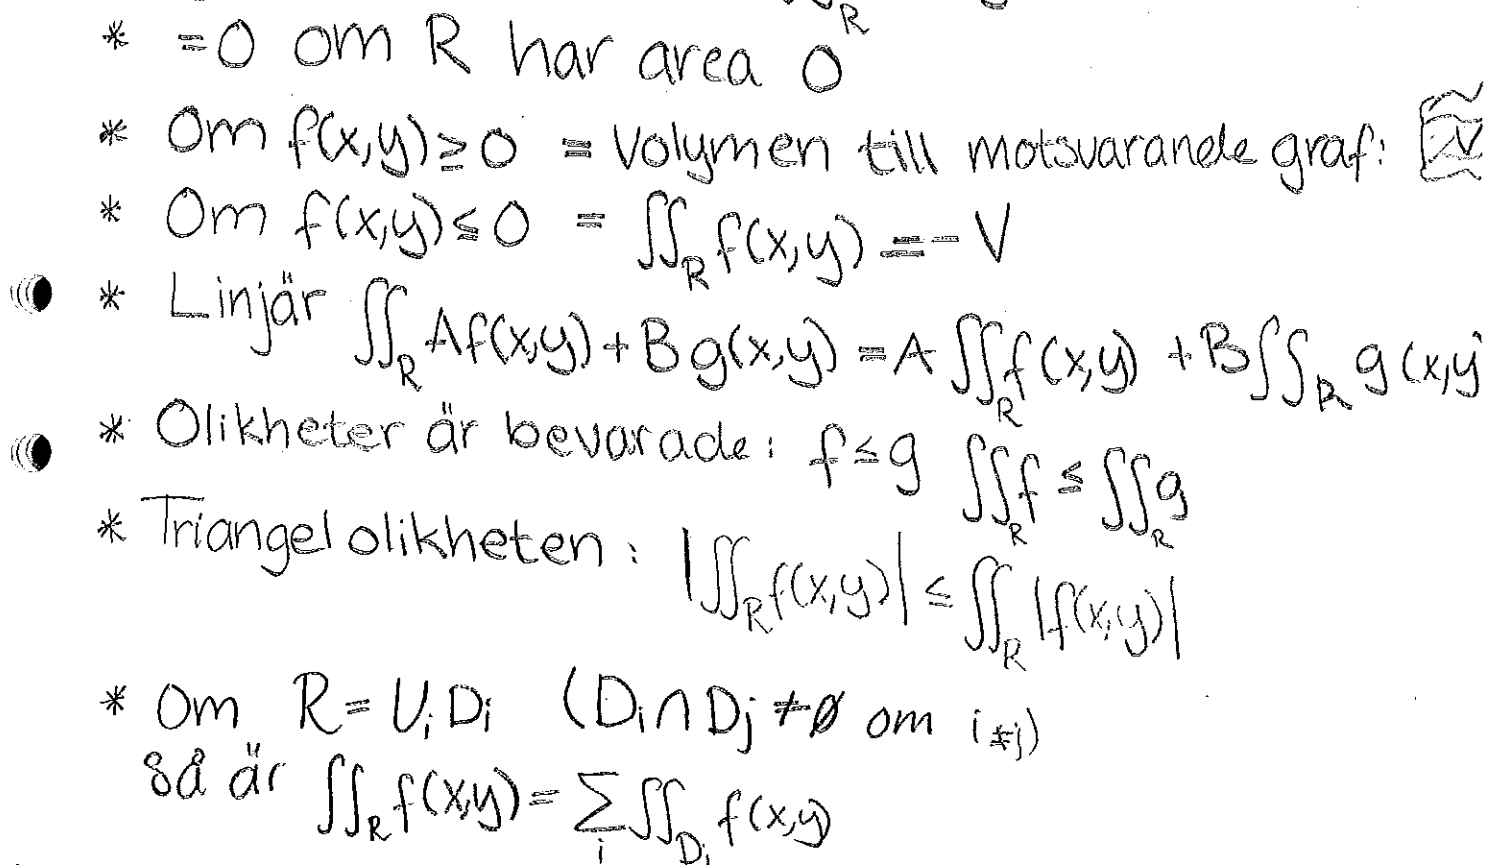 * =0 om R har area 0
* Om f(x,y)≥0 = Volymen till motsvarande graf: V
* Om f(x,y)≤0 = ∬_R f(x,y) = -V
* Linjär ∬_R Af(x,y)+Bg(x,y) = A∬_R f(x,y) + B∬_R g(x,y
* Olikheter är bevarade: f≤g ∬_R f ≤ ∬_R g
* Triangelolikheten: |∬_R f(x,y)| ≤ ∬_R |f(x,y)|
* Om R = ∪_i D_i (D_i ∩ D_j ≠ ∅ om i≠j)
så är ∬_R f(x,y) = ∑_i ∬_{D_i} f(x,y)